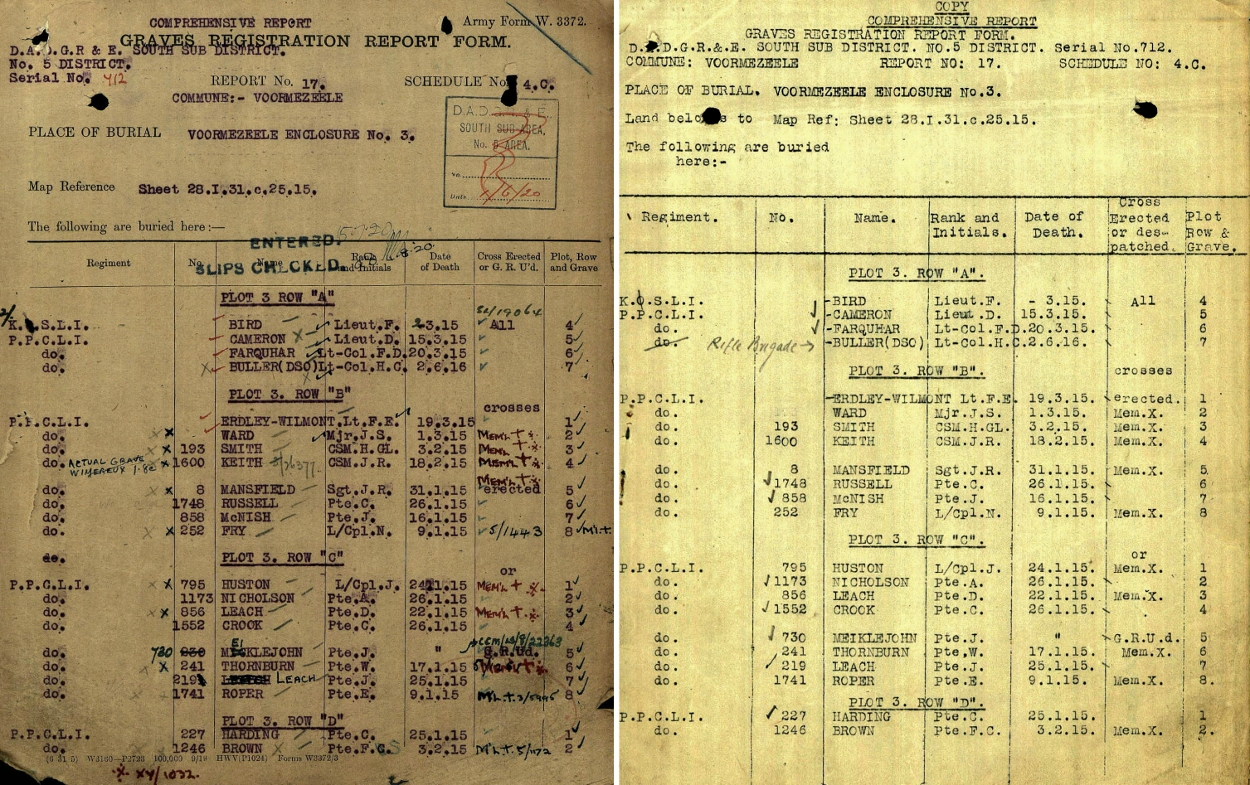 COMPREHENSIVE REPORT
Army Form W. 3372.
GRAVES REGISTRATION REPORT FORM.
D.A.D.G.R & E. SOUTH SUB DISTRICT.
No. 5 DISTRICT.
Serial No. 712
REPORT No. 17.
SCHEDULE No. 4.C.
COMMUNE:- VOORMEZEELE
D.A.D.
SOUTH SUB AREA.
No. AREA.
No.
Date
PLACE OF BURIAL VOORMEZEELE ENCLOSURE No. 3.
Map Reference Sheet 28.I.31.c.25.15.
The following are buried here:—
ENTERED.
SLIPS CHECKED.
Regiment No. Name Rank and Initials Date of Death Cross Erected or G. R. U'd. Plot, Row and Grave
PLOT 3 ROW "A"
K.O.S.L.I. BIRD Lieut.F. 3.15 All 4
P.P.C.L.I. CAMERON Lieut.D. 15.3.15 5
do. FARQUHAR Lt-Col.F.D. 20.3.15 6
do. BULLER(DSO) Lt-Col.H.C. 2.6.16 7
PLOT 3. ROW "B"
crosses
P.P.C.L.I. ERDLEY-WILMONT. Lt.F.E. 19.3.15 1
do. WARD Mjr.J.S. 1.3.15 Mem'l + 2
do. 193 SMITH CSM.H.GL. 3.2.15 Mem'l + 3
do. ACTUAL GRAVE WIMEREUX 1600 KEITH CSM.J.R. 18.2.15 Mem'l + 4
Mem'l +
do. 8 MANSFIELD Sgt.J.R. 31.1.15 erected 5
do. 1748 RUSSELL Pte.C. 26.1.15 6
do. 858 McNISH Pte.J. 16.1.15 7
do. 252 FRY L/Cpl.N. 9.1.15 5/1443 8
do. PLOT 3. ROW "C"
or
P.P.C.L.I. 795 HUSTON L/Cpl.J. 24.1.15 Mem'l + 1
do. 1173 NICHOLSON Pte.A. 26.1.15 2
do. 856 LEACH Pte.D. 22.1.15 Mem'l + 3
do. 1552 CROOK Pte.C. 26.1.15 4
do. 730 MEIKLEJOHN Pte.J. " G.R.Ud. 5
do. 241 THORNBURN Pte.W. 17.1.15 6
do. 219 LEACH Pte.J. 25.1.15 7
do. 1741 ROPER Pte.E. 9.1.15 8
PLOT 3. ROW "D"
P.P.C.L.I. 227 HARDING Pte.C. 25.1.15 1
do. 1246 BROWN Pte.F.C. 3.2.15 2
(6 31 5) W3160—P2723 100,000 9/19 HWV(P1024) Forms W3372/3
COPY
COMPREHENSIVE REPORT
GRAVES REGISTRATION REPORT FORM.
D.A.D.G.R.&.E. SOUTH SUB DISTRICT. NO.5 DISTRICT. Serial No.712.
COMMUNE: VOORMEZEELE REPORT NO: 17. SCHEDULE NO: 4.C.
PLACE OF BURIAL. VOORMEZEELE ENCLOSURE No.3.
Land belongs to Map Ref: Sheet 28.I.31.c.25.15.
The following are buried
here:-
Regiment. No. Name. Rank and Initials. Date of Death. Cross Erected or des-patched. Plot Row & Grave.
PLOT 3. ROW "A".
K.O.S.L.I. BIRD Lieut.F. - 3.15. All 4
P.P.C.L.I. CAMERON Lieut.D. 15.3.15. 5
do. FARQUHAR Lt-Col.F.D. 20.3.15. 6
do. Rifle Brigade → BULLER(DSO) Lt-Col.H.C. 2.6.16. 7
PLOT 3. ROW "B".
crosses
P.P.C.L.I. ERDLEY-WILMONT Lt.F.E. 19.3.15. erected. 1
do. WARD Mjr.J.S. 1.3.15. Mem.X. 2
do. 193 SMITH CSM.H.GL. 3.2.15. Mem.X. 3
do. 1600 KEITH CSM.J.R. 18.2.15. Mem.X. 4
do. 8 MANSFIELD Sgt.J.R. 31.1.15. Mem.X. 5
do. 1748 RUSSELL Pte.C. 26.1.15. 6
do. 858 McNISH Pte.J. 16.1.15. 7
do. 252 FRY L/Cpl.N. 9.1.15. Mem.X. 8
PLOT 3. ROW "C".
or
P.P.C.L.I. 795 HUSTON L/Cpl.J. 24.1.15. Mem.X. 1
do. 1173 NICHOLSON Pte.A. 26.1.15. 2
do. 856 LEACH Pte.D. 22.1.15. Mem.X. 3
do. 1552 CROOK Pte.C. 26.1.15. 4
do. 730 MEIKLEJOHN Pte.J. " G.R.U.d. 5
do. 241 THORNBURN Pte.W. 17.1.15. Mem.X. 6
do. 219 LEACH Pte.J. 25.1.15. 7
do. 1741 ROPER Pte.E. 9.1.15. Mem.X. 8.
PLOT 3. ROW "D".
P.P.C.L.I. 227 HARDING Pte.C. 25.1.15. 1
do. 1246 BROWN Pte.F.C. 3.2.15. Mem.X. 2.